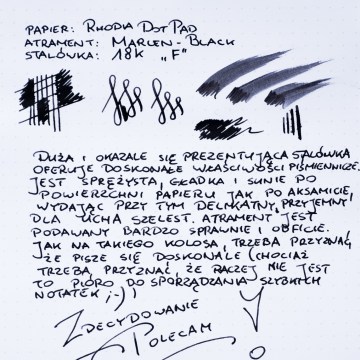 PAPIER: RHODIA DOT PAD
ATRAMENT: MARLEN - BLACK
STALÓWKA: 18K „F"
DUŻA I OKAZALE SIĘ PREZENTUJĄCA STALÓWKA
OPERUJE DOSKONAŁE WŁAŚCIWOŚCI PIŚMIENNICZE.
JEST SPRĘŻYSTA, GŁADKA I SUNIE PO
POWIERZCHNI PAPIERU JAK PO AKSAMICIE,
WYDAJĄC PRZY TYM DELIKATNY, PRZYJEMNY
DLA UCHA SZELEST. ATRAMENT JEST
PODAWANY BARDZO SPRAWNIE I OBFICIE.
JAK NA TAKIEGO KOLOSA, TRZEBA PRZYZNAĆ,
ŻE PISZE SIĘ DOSKONALE (CHOCIAŻ
TRZEBA PRZYZNAĆ, ŻE RACZEJ NIE JEST
TO PIÓRO DO SPORZĄDZANIA SZYBKICH
NOTATEK ;-))
ZDECYDOWANIE
POLECAM!